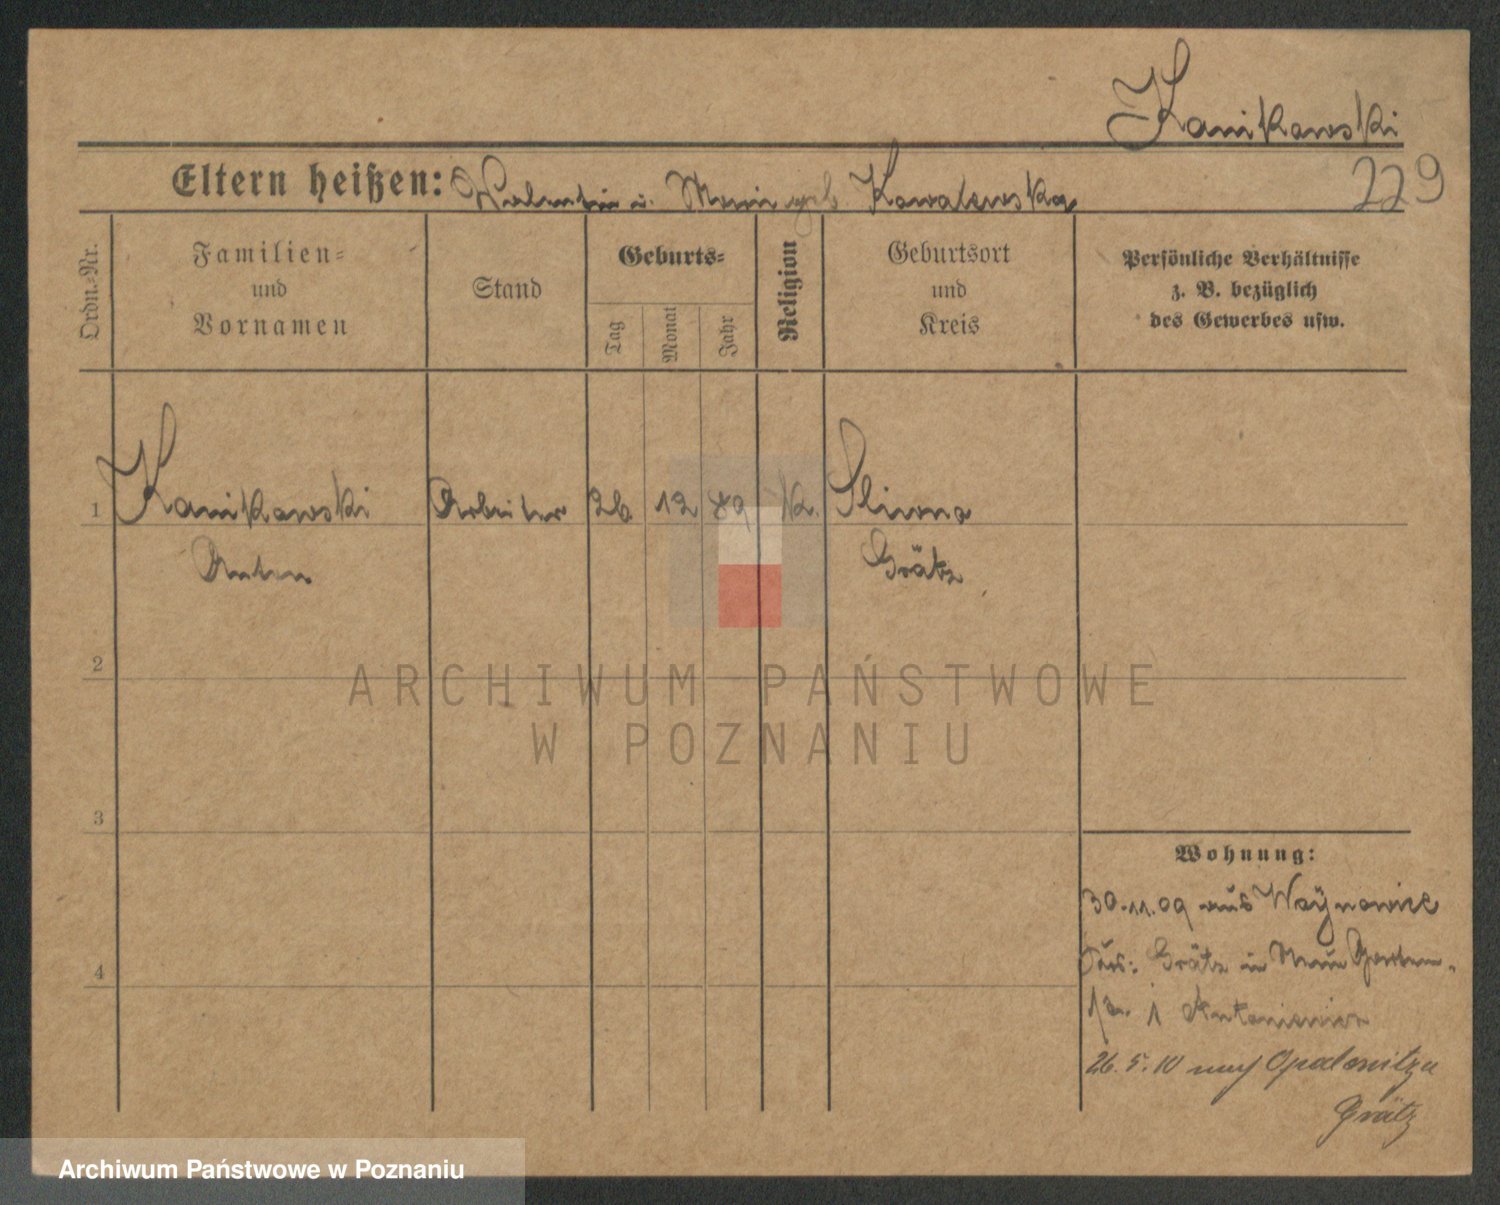 Kanikowski
Eltern heißen: Valentin u. Marie geb Kowalewska
229
Ordn.-Nr.
Familien-
und
Vornamen
Stand
Geburts-
Tag
Monat
Jahr
Religion
Geburtsort
und
Kreis
Persönliche Verhältnisse
z. B. bezüglich
des Gewerbes usw.
1 Kanikowski Arbeiter 26 12 89 K. Sliwno
Anton Grätz
ARCHIWUM PAŃSTWOWE
W POZNANIU
2
3
4
Wohnung:
30.11.09 aus Woÿnowice
Grätz in
i
26.5.10 nach Opalenitza
Grätz
Archiwum Państwowe w Poznaniu